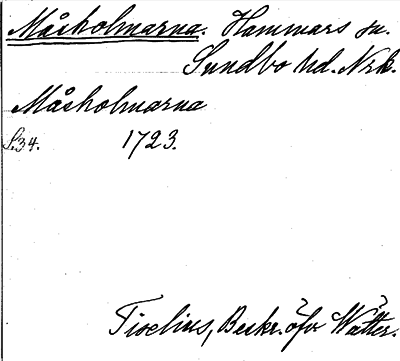 Måsholmarna. Hammars sn.
Sundbo hd. Nrk.
Måsholmarna
S.34. 1723.
Tiselius, Beskr. öfver Wätter.